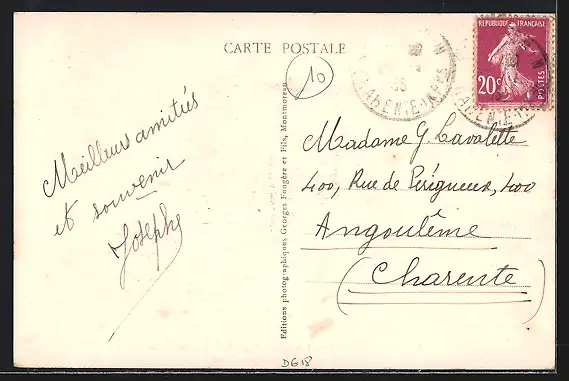 CARTE POSTALE
10
REPUBLIQUE FRANÇAISE
20c
POSTES
35
CHARENTE-INFRE
Meilleurs amitiés
et souvenir
Josephe
Editions photographiques Georges Fougère et Fils, Montmoreau
Madame G. Lavalette
400, Rue de Périgueux, 400
Angoulême
(Charente)
DG18